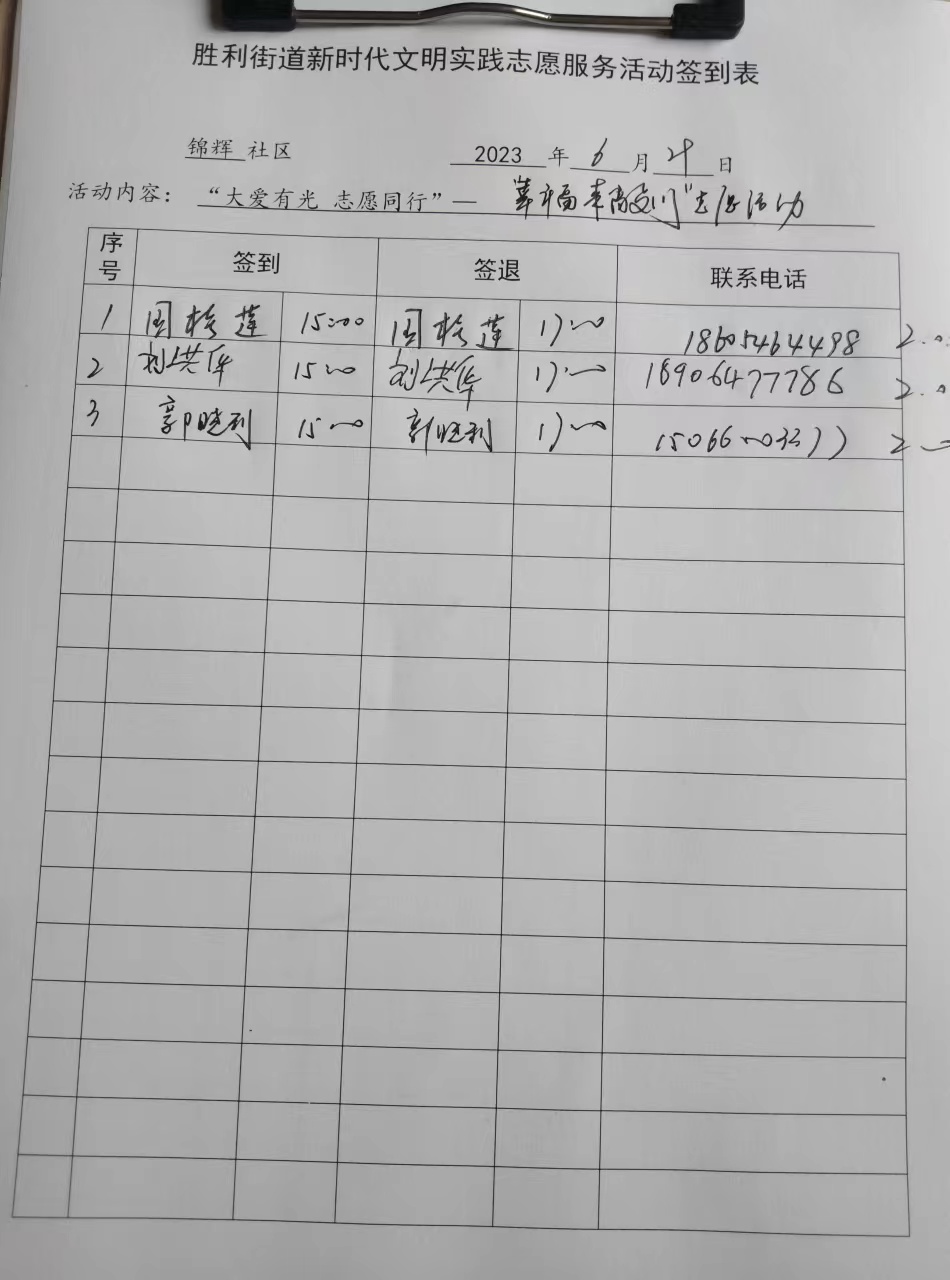 胜利街道新时代文明实践志愿服务活动签到表
锦辉 社区 2023 年 6 月 21 日
活动内容：“大爱有光 志愿同行”— 幸福来敲门”志愿活动
序号 签到 签退 联系电话
1 周桂莲 15:00 周桂莲 17:00 18605464498 2.0
2 刘洪华 15:00 刘洪华 17:00 18906477786 2.0
3 郭晓利 15:00 郭晓利 17:00 15066003377 2